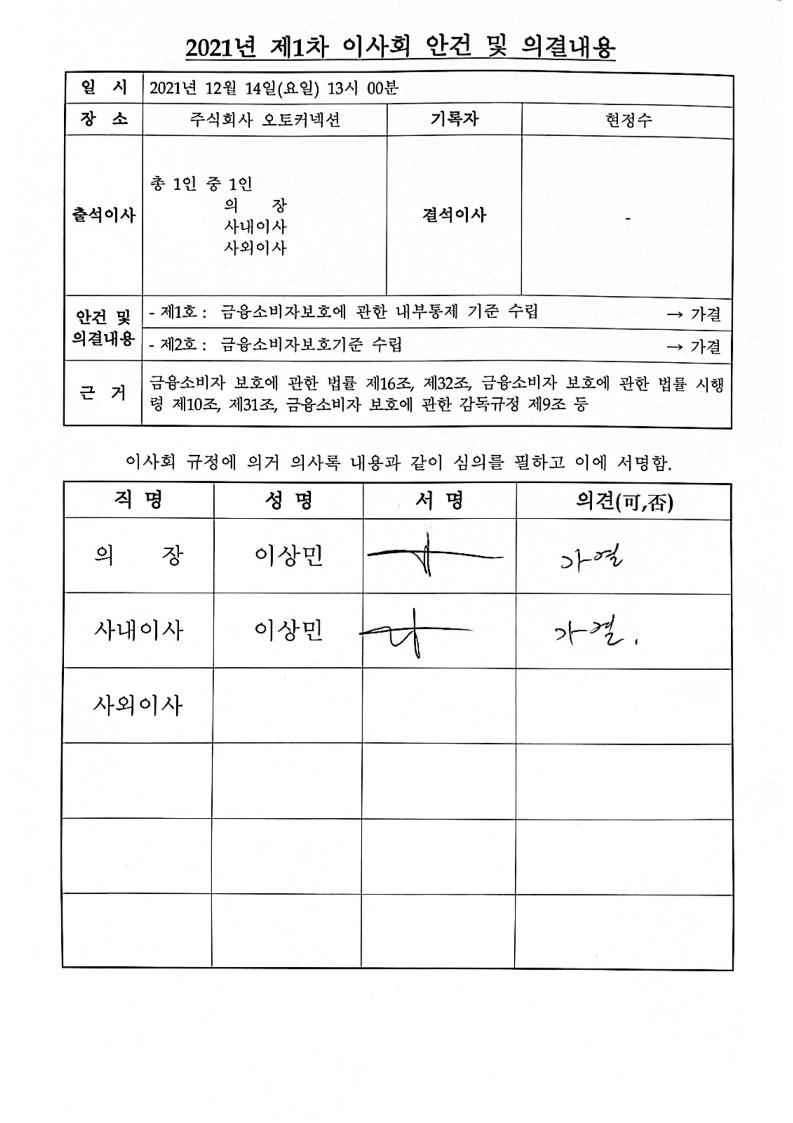 2021년 제1차 이사회 안건 및 의결내용
일 시 2021년 12월 14일(요일) 13시 00분
장 소 주식회사 오토커넥션 기록자 현정수
출석이사 총 1인 중 1인
의 장
사내이사
사외이사
결석이사 -
안건 및 의결내용
- 제1호 : 금융소비자보호에 관한 내부통제 기준 수립 → 가결
- 제2호 : 금융소비자보호기준 수립 → 가결
근 거 금융소비자 보호에 관한 법률 제16조, 제32조, 금융소비자 보호에 관한 법률 시행
령 제10조, 제31조, 금융소비자 보호에 관한 감독규정 제9조 등
이사회 규정에 의거 의사록 내용과 같이 심의를 필하고 이에 서명함.
직 명 성 명 서 명 의견(可,否)
의 장 이상민 가결
사내이사 이상민 가결.
사외이사